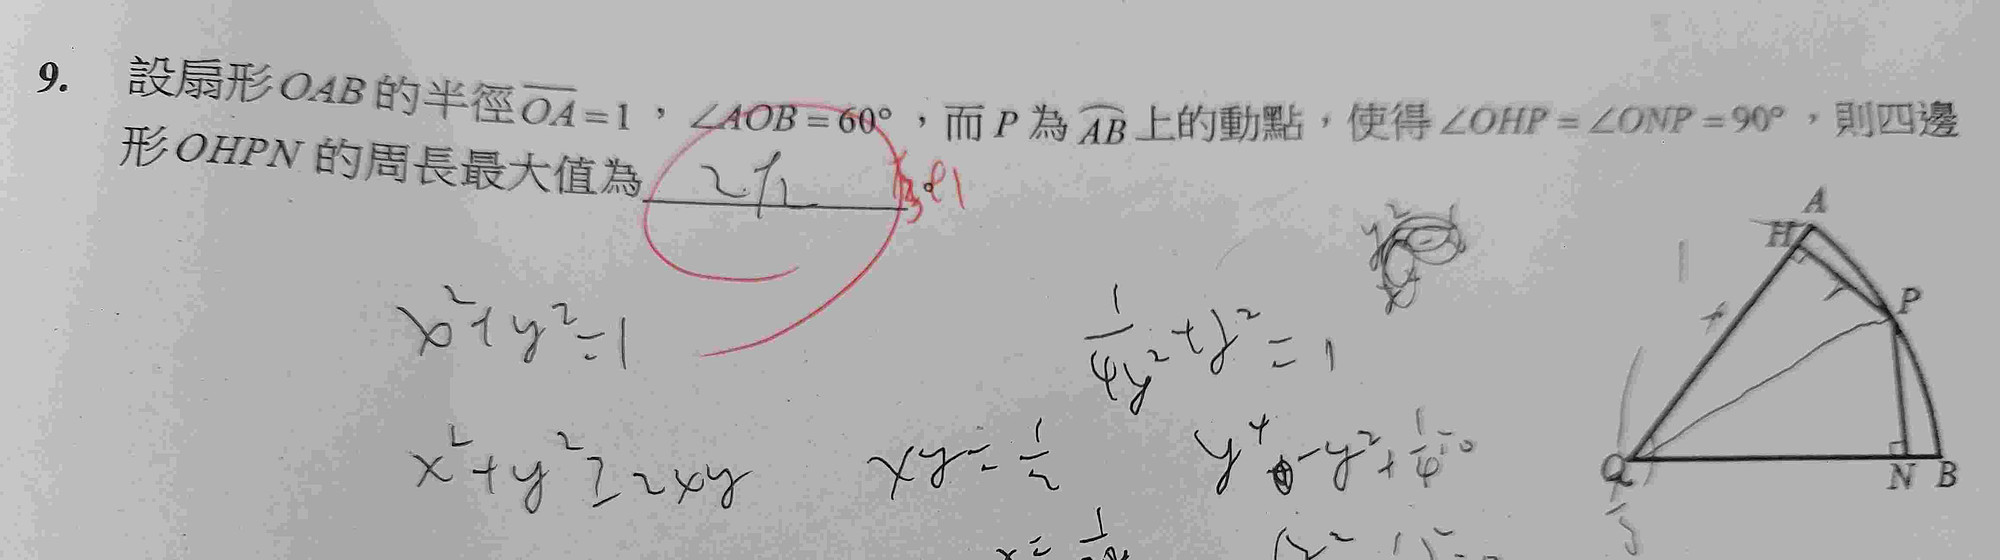 9. 設扇形OAB的半徑OA=1，∠AOB=60°，而P為AB上的動點，使得∠OHP=∠ONP=90°，則四邊
形OHPN的周長最大值為 2√2 √3+1
x²+y²=1
1/4y²+y²=1
x²+y²≥2xy
xy=1/2
y⁴-y²+1/4=0
A
H
P
O
N
B